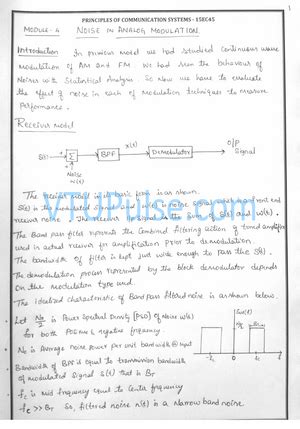 PRINCIPLES OF COMMUNICATION SYSTEMS - 15EC45
1
MODULE - 4 NOISE IN ANALOG MODULATION.
Introduction In previous model we had studied continuous wave
modulation of AM and FM we had seen the behaviour of
Noises with Statistical Analysis. So now we have to evaluate
the effect of noise in each of modulation techniques to measure
Performance.
Receiver model
S(t) Σ BPF x(t) Demodulator O/P Signal
Noise
w(t)
The receiver model in its basic form is as shown.
S(t) is the modulated signal and w(t) is noise signal front end
receiver noise. The receiver signal is the Sum of S(t) and w(t).
VTUPulse.com
The Band pass filter represents the Combined filtering action of tuned amplifier
used in actual receiver for amplification Prior to demodulation.
The bandwidth of filter is kept just wide enough to pass the S(t).
The demodulation process represented by the block demodulator depends
on the modulation type used.
The idealized characteristic of Band pass filtered noise is as shown below.
Let No/2 is Power Spectral Density [PSD] of Noise w(t)
for both Positive & negative frequency
No is Average noise Power per unit bandwidth @ input
Bandwidth of BPF is equal to transmission bandwidth
of modulated Signal s(t) that is BT
fc is mid frequency equal to Center frequency
fc >> BT So, filtered noise n(t) is a Narrow band noise